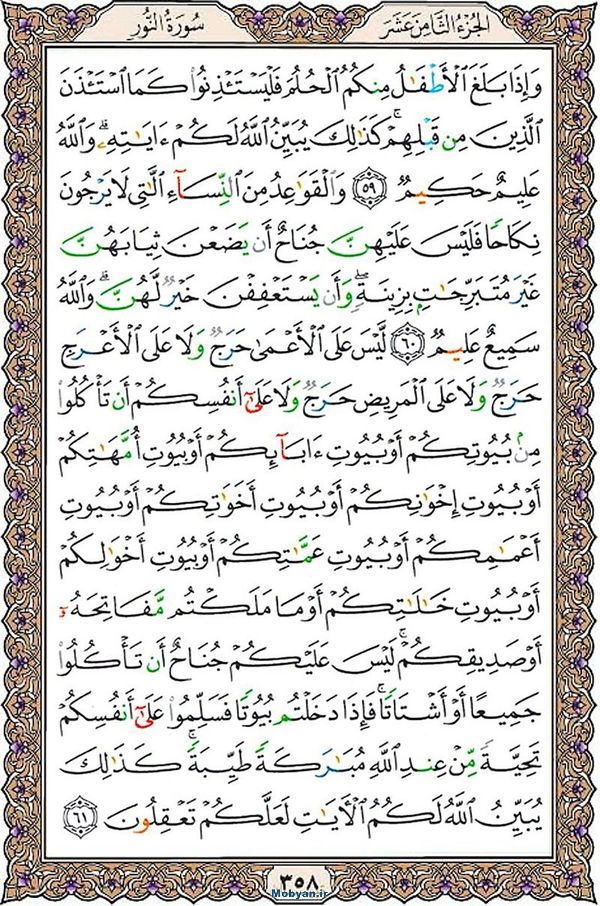 الجُزءُ الثَّامِنَ عَشَرَ
سُورَةُ النُّورِ
وَإِذَا بَلَغَ ٱلْأَطْفَـٰلُ مِنكُمُ ٱلْحُلُمَ فَلْيَسْتَـْٔذِنُوا۟ كَمَا ٱسْتَـْٔذَنَ
ٱلَّذِينَ مِن قَبْلِهِمْ ۚ كَذَٰلِكَ يُبَيِّنُ ٱللَّهُ لَكُمْ ءَايَـٰتِهِۦ ۗ وَٱللَّهُ
عَلِيمٌ حَكِيمٌ ٥٩ وَٱلْقَوَٰعِدُ مِنَ ٱلنِّسَآءِ ٱلَّـٰتِى لَا يَرْجُونَ
نِكَاحًا فَلَيْسَ عَلَيْهِنَّ جُنَاحٌ أَن يَضَعْنَ ثِيَابَهُنَّ
غَيْرَ مُتَبَرِّجَـٰتٍۭ بِزِينَةٍ ۖ وَأَن يَسْتَعْفِفْنَ خَيْرٌ لَّهُنَّ ۗ وَٱللَّهُ
سَمِيعٌ عَلِيمٌ ٦٠ لَّيْسَ عَلَى ٱلْأَعْمَىٰ حَرَجٌ وَلَا عَلَى ٱلْأَعْرَجِ
حَرَجٌ وَلَا عَلَى ٱلْمَرِيضِ حَرَجٌ وَلَا عَلَىٰٓ أَنفُسِكُمْ أَن تَأْكُلُوا۟
مِنۢ بُيُوتِكُمْ أَوْ بُيُوتِ ءَابَآئِكُمْ أَوْ بُيُوتِ أُمَّهَـٰتِكُمْ
أَوْ بُيُوتِ إِخْوَٰنِكُمْ أَوْ بُيُوتِ أَخَوَٰتِكُمْ أَوْ بُيُوتِ
أَعْمَـٰمِكُمْ أَوْ بُيُوتِ عَمَّـٰتِكُمْ أَوْ بُيُوتِ أَخْوَٰلِكُمْ
أَوْ بُيُوتِ خَـٰلَـٰتِكُمْ أَوْ مَا مَلَكْتُم مَّفَاتِحَهُۥٓ
أَوْ صَدِيقِكُمْ ۚ لَيْسَ عَلَيْكُمْ جُنَاحٌ أَن تَأْكُلُوا۟
جَمِيعًا أَوْ أَشْتَاتًا ۚ فَإِذَا دَخَلْتُم بُيُوتًا فَسَلِّمُوا۟ عَلَىٰٓ أَنفُسِكُمْ
تَحِيَّةً مِّنْ عِندِ ٱللَّهِ مُبَـٰرَكَةً طَيِّبَةً ۚ كَذَٰلِكَ
يُبَيِّنُ ٱللَّهُ لَكُمُ ٱلْـَٔايَـٰتِ لَعَلَّكُمْ تَعْقِلُونَ ٦١
٣٥٨
Mobyan.ir